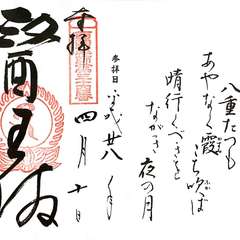 八重たつも
あやなく霞
こち吹ば
晴行くべきと
ながき
夜の月
参拝日
平成廿八年
四月十日
奉拝
醫王佛